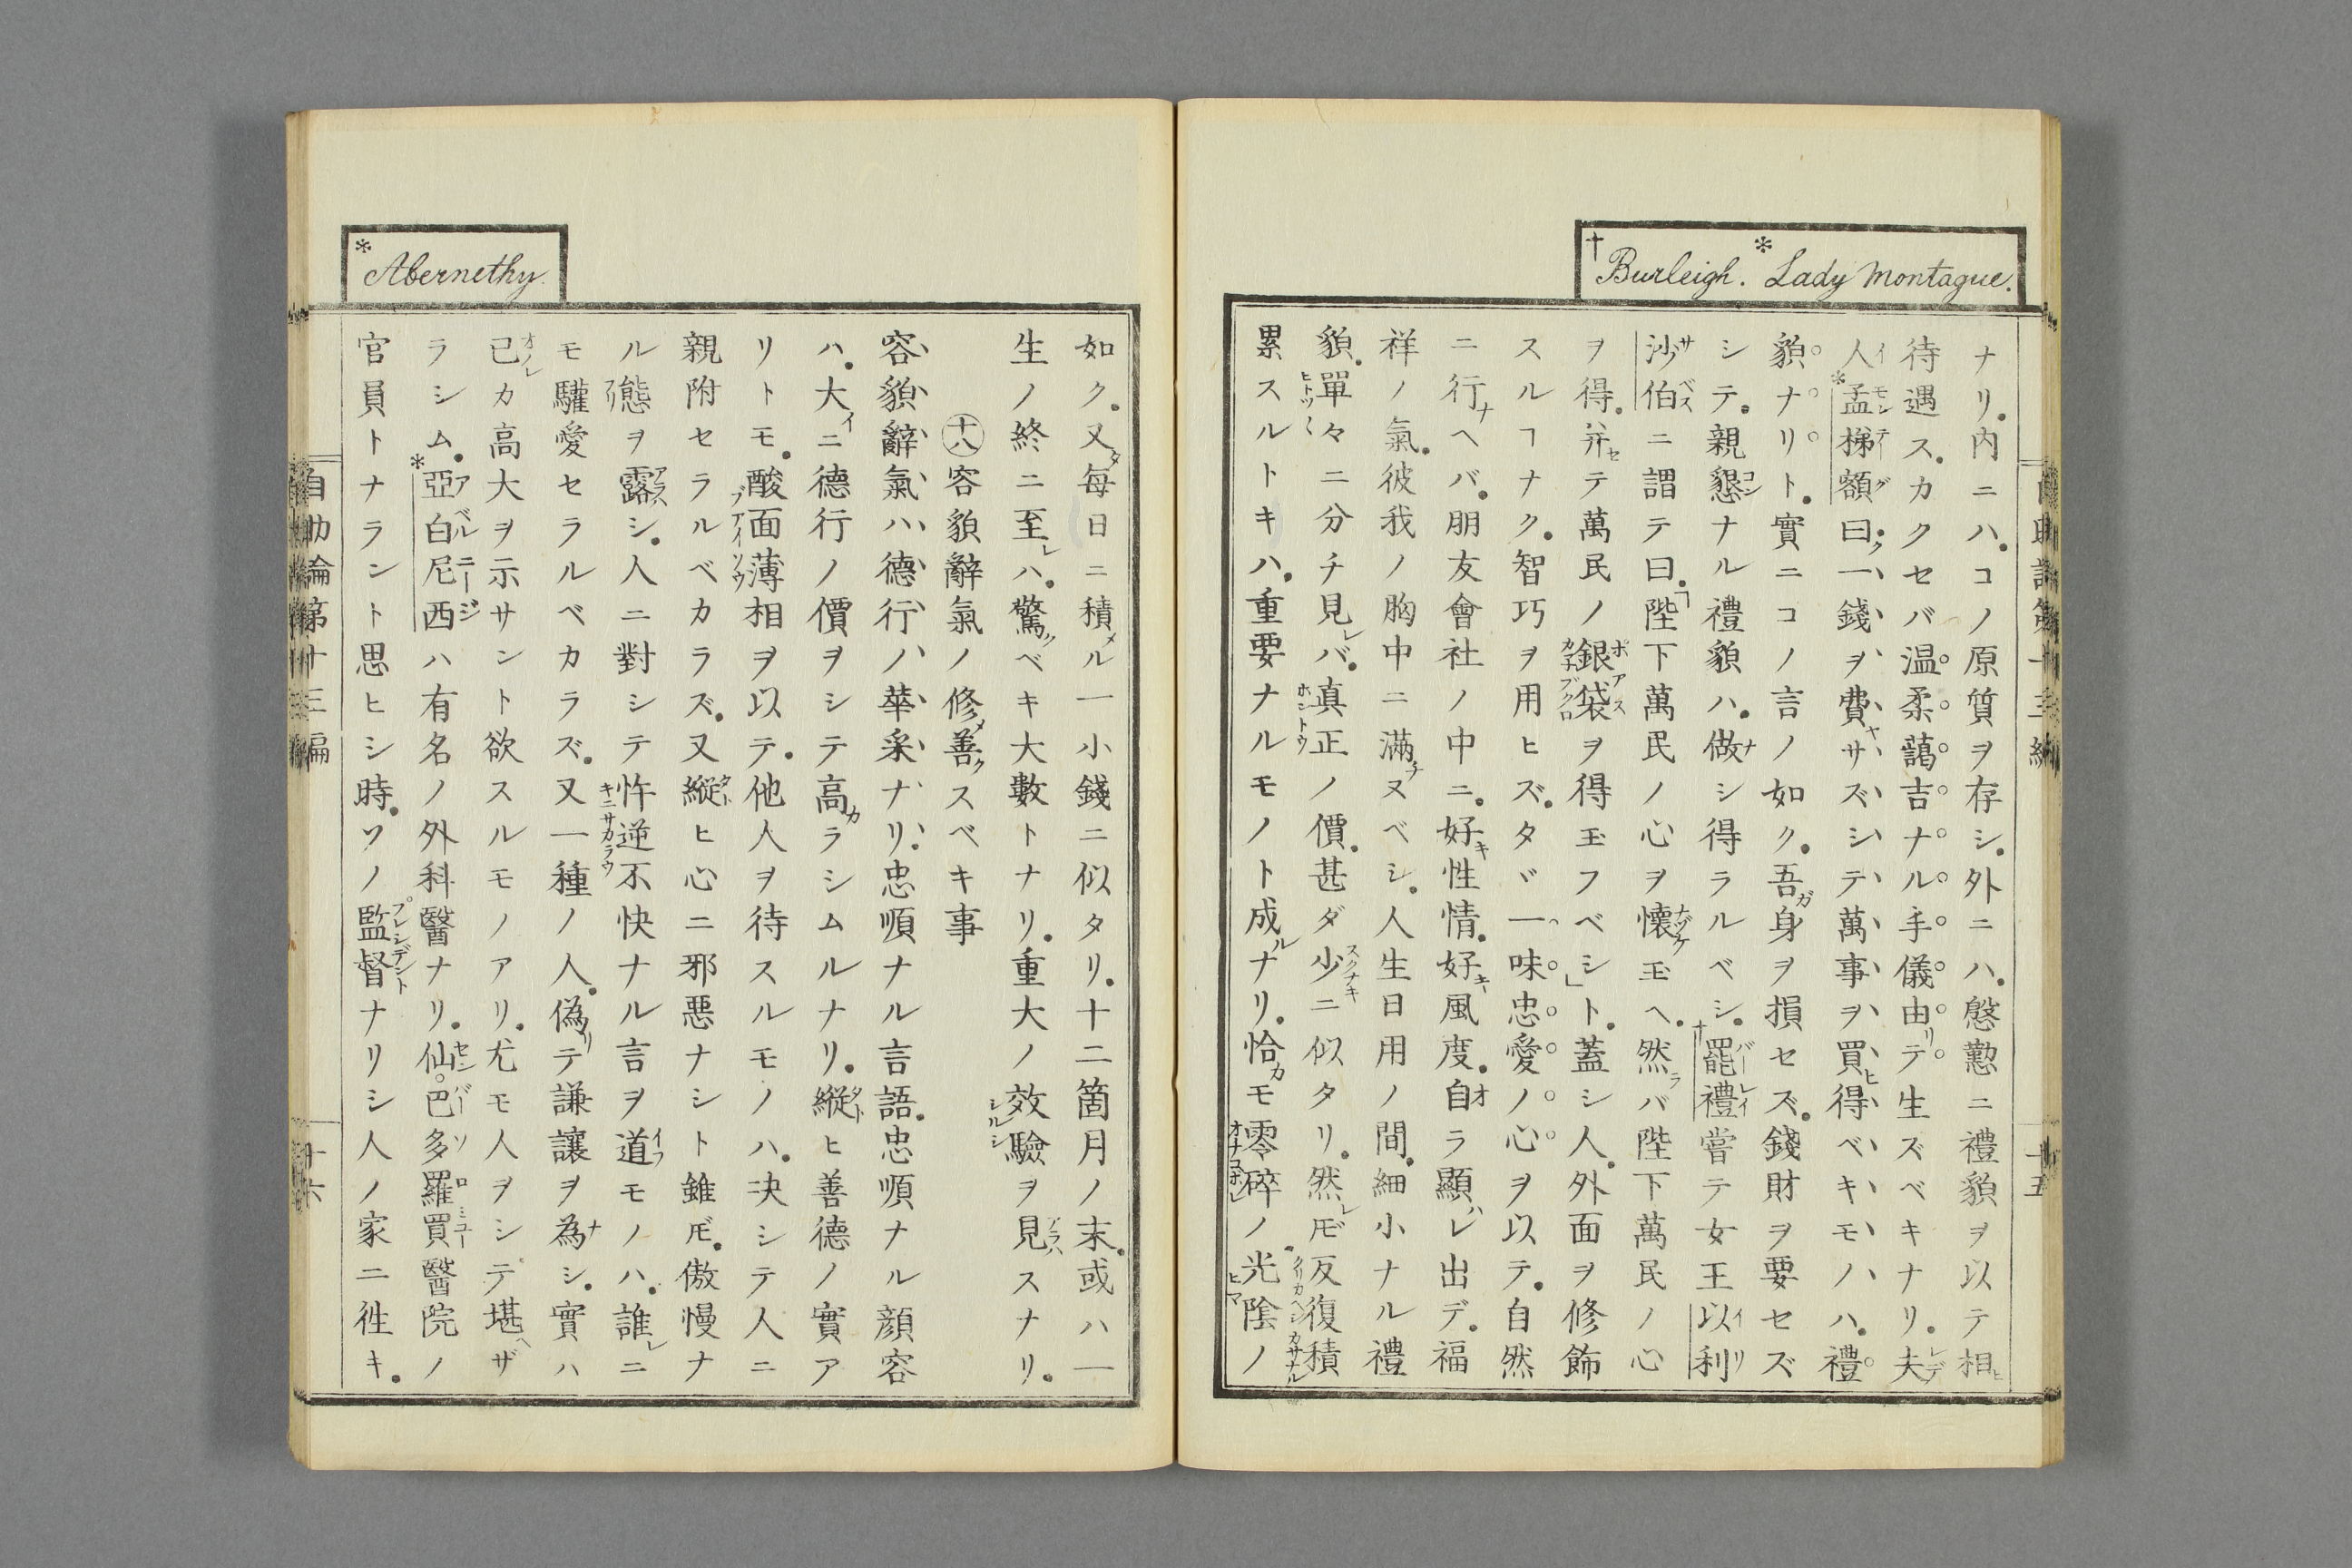 †Burleigh. *Lady Montague.
ナリ。内ニハ。コノ原質ヲ存シ。外ニハ。慇懃ニ禮貌ヲ以テ相ヒ
待遇ス。カクセバ温柔藹吉ナル手儀由リテ生ズベキナリ。夫レデ
人イ*孟梯額モンテーグ曰ク。一錢ヲ費ヤサズシテ萬事ヲ買ヒ得ベキモノハ。禮
貌ナリト。實ニコノ言ノ如ク。吾ガ身ヲ損セズ。錢財ヲ要セズ
シテ。親懇コンナル禮貌ハ。做ナシ得ラルベシ。†罷禮バーレイ嘗テ女王以利イリ
沙伯サベスニ謂テ曰ク。「陛下萬民ノ心ヲ懷ナヅケ玉ヘ。然ラバ陛下萬民ノ心
ヲ得。幷セテ萬民ノ銀袋ポアスカネブクロヲ得玉フベシ」ト。蓋シ人。外面ヲ修飾
スルヿナク。智巧ヲ用ヒズ。タヾ一味忠愛ノ心ヲ以テ。自然
ニ行ナヘバ。朋友會社ノ中ニ。好キ性情。好キ風度。自オラ顯ハレ出デ。福
祥ノ氣。彼我ノ胸中ニ滿チヌベシ。人生日用ノ間。細小ナル禮
貌。單々ヒトツ〱ニ分チ見レバ。真正ホントウノ價。甚ダ少スクナキニ似タリ。然レ𪜈反復積クリカヘシカサナル
累スルトキハ。重要ナルモノト成ルナリ。恰カモ零碎オチコボレノ光陰ヒマノ
自助論第十三編 十五
*Abernethy.
如ク。又タ每日ニ積メル一小錢ニ似タリ。十二箇月ノ末。或ハ一
生ノ終ニ至レハ。驚クベキ大數トナリ。重大ノ效驗シルシヲ見アラハスナリ。
十八 容貌辭氣ノ修メ善クスベキ事
容貌辭氣ハ德行ノ華采ナリ。忠順ナル言語。忠順ナル顏容
ハ。大イニ德行ノ價ヲシテ高カラシムルナリ。縱タトヒ善德ノ實ア
リトモ。酸面薄相ブアイソウヲ以テ。他人ヲ待スルモノハ。決シテ人ニ
親附セラルベカラズ。又縱タトヒ心ニ邪惡ナシト雖𪜈。傲慢ナ
ル態フリヲ露アラハシ。人ニ對シテ忤逆キニサカラウ不快ナル言ヲ道イフモノハ。誰レニ
モ驩愛セラルベカラズ。又一種ノ人。偽リテ謙讓ヲ為ナシ。實ハ
己オノレカ高大ヲ示サント欲スルモノアリ。尤モ人ヲシテ堪ヘザ
ラシム。*亞白尼西アベルニージハ有名ノ外科醫ナリ。仙巴多羅買センバーソロミユー醫院ノ
官員トナラント思ヒシ時。ソノ監督プレシデントナリシ人ノ家ニ徃キ。
自助論第十三編 十六